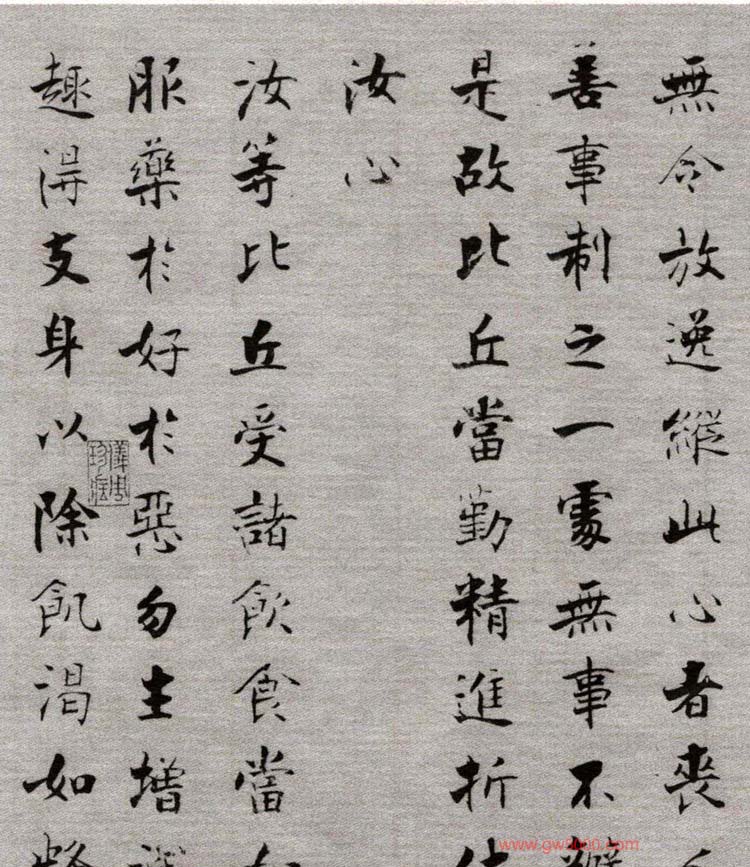 無令放逸縱此心者喪
善事制之一處無事不
是故比丘當勤精進折
汝心
汝等比丘受諸飲食當
服藥於好於惡勿生增
趣得支身以除飢渴如
儀周珍藏